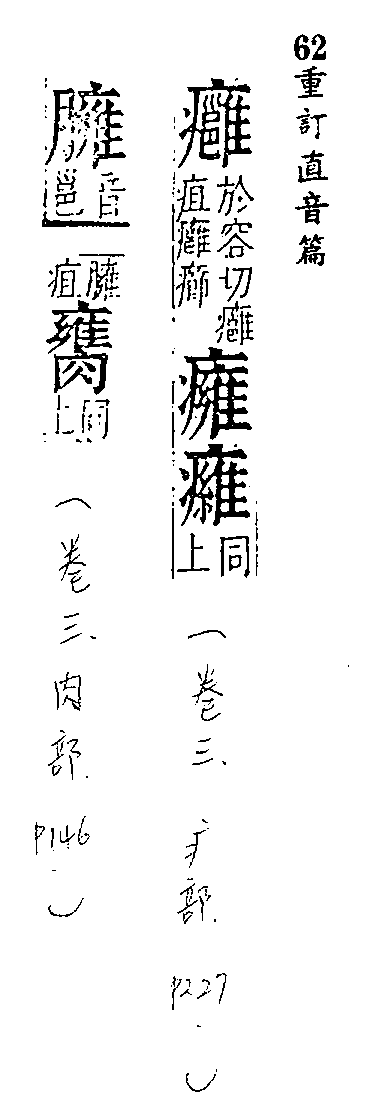 62 重訂直音篇
癰
於容切癰
疽
癕
同上
(卷三、疒部. P227.)
臃
音邕
臃疽
同上
(卷三、肉部. P146.)